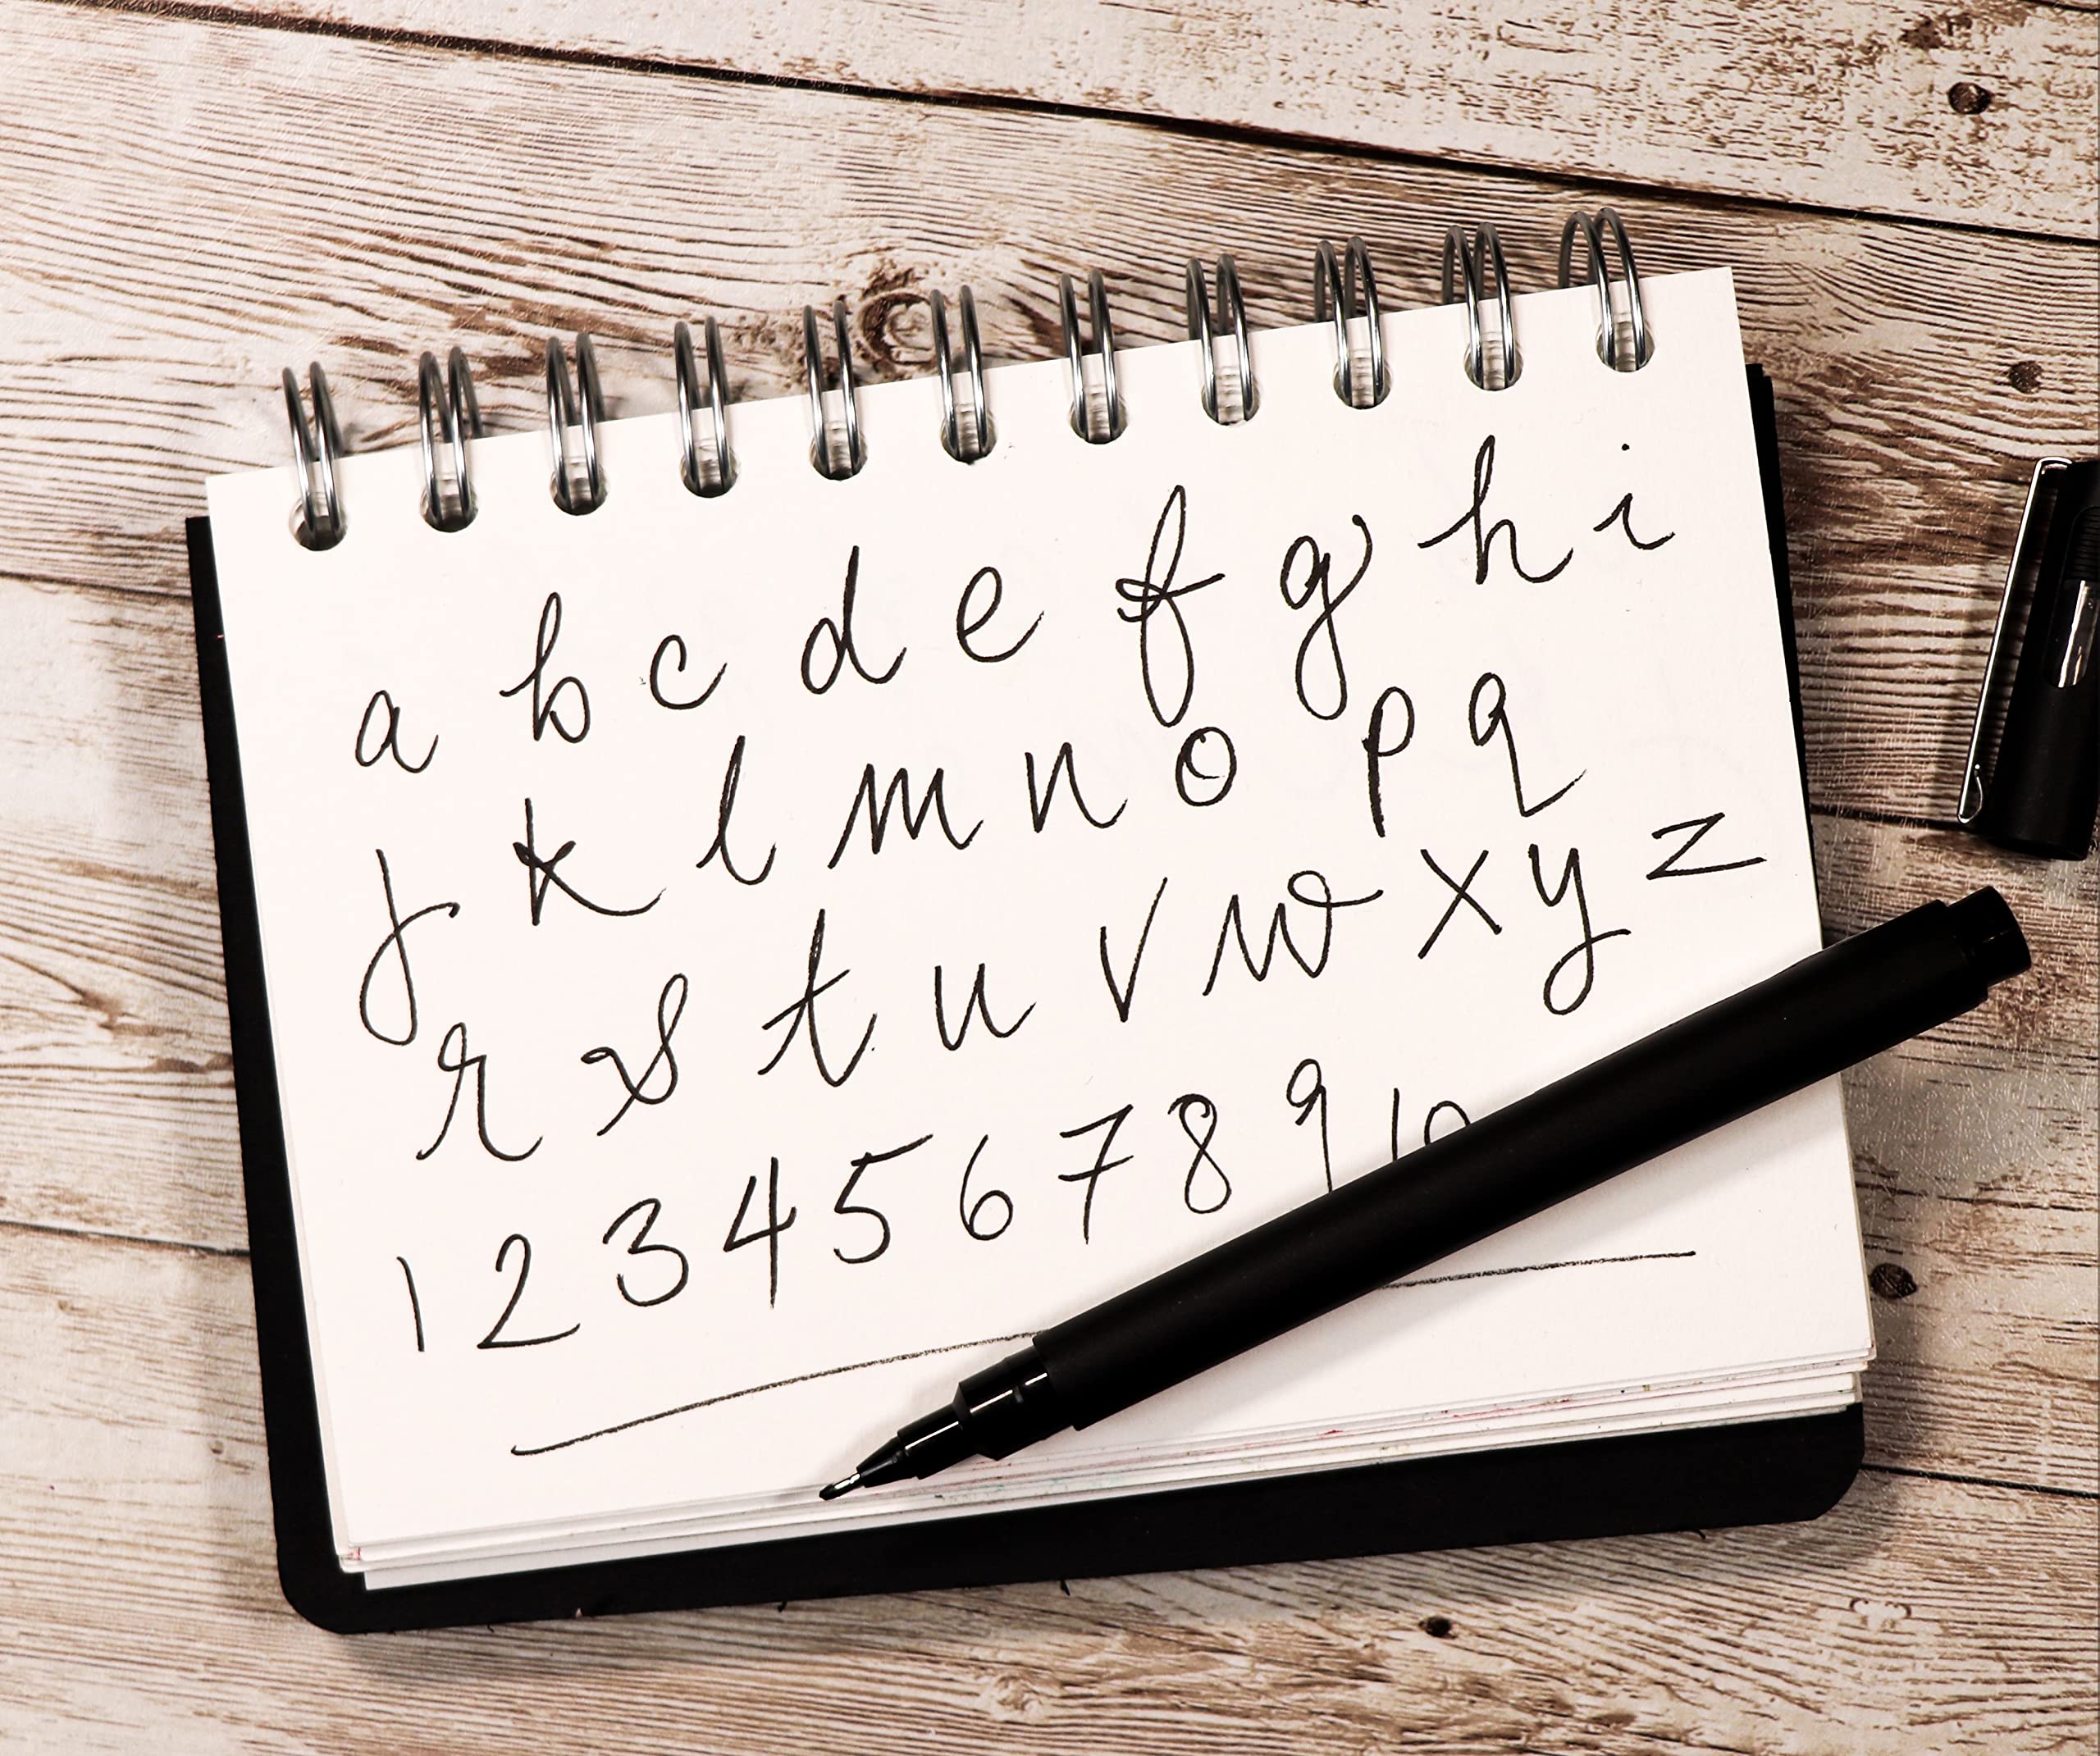 a b c d e f g h i
j k l m n o p q
r s t u v w x y z
1 2 3 4 5 6 7 8 9 10